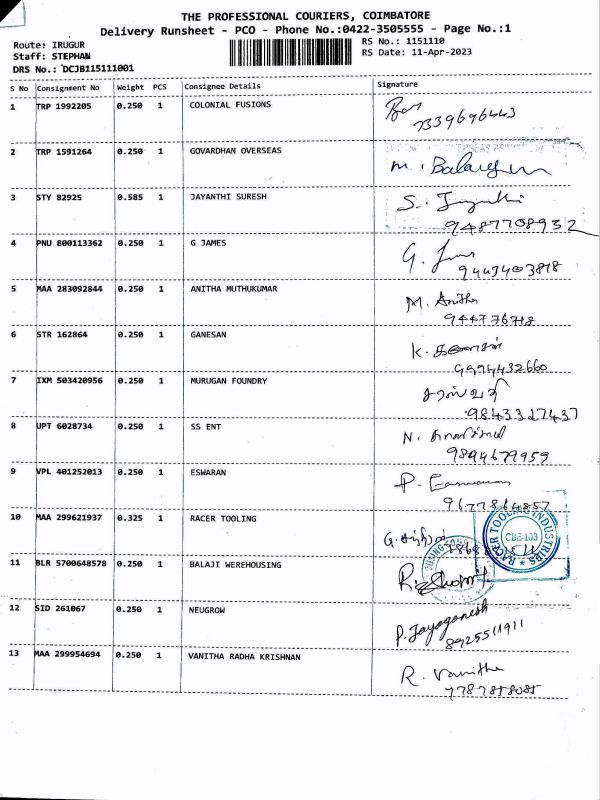 THE PROFESSIONAL COURIERS, COIMBATORE
Delivery Runsheet - PCO - Phone No.:0422-3505555 - Page No.:1
Route: IRUGUR
RS No.: 1151110
Staff: STEPHAN
RS Date: 11-Apr-2023
DRS No.: DCJB115111001
S No Consignment No Weight PCS Consignee Details Signature
1 TRP 1992205 0.250 1 COLONIAL FUSIONS
7339696443
2 TRP 1591264 0.250 1 GOVARDHAN OVERSEAS
M.
3 STY 82925 0.585 1 JAYANTHI SURESH S.
9487708932
4 PNU 800113362 0.250 1 G JAMES G.
9443403818
5 MAA 283092844 0.250 1 ANITHA MUTHUKUMAR M. Anitha
944776718
6 STR 162864 0.250 1 GANESAN K. கணேசன்
9994432660
7 IXM 503420956 0.250 1 MURUGAN FOUNDRY
9843327437
8 UPT 6028734 0.250 1 SS ENT N.
9894679959
9 VPL 401252013 0.250 1 ESWARAN P.
9677864857
10 MAA 299621937 0.325 1 RACER TOOLING G.
RACER TOOLING INDUSTRIES
CBE-103
11 BLR 5700648578 0.250 1 BALAJI WEREHOUSING
12 SID 261067 0.250 1 NEUGROW P. Jayaganesh
8925511911
13 MAA 299954694 0.250 1 VANITHA RADHA KRISHNAN R. Vanitha
7787858085